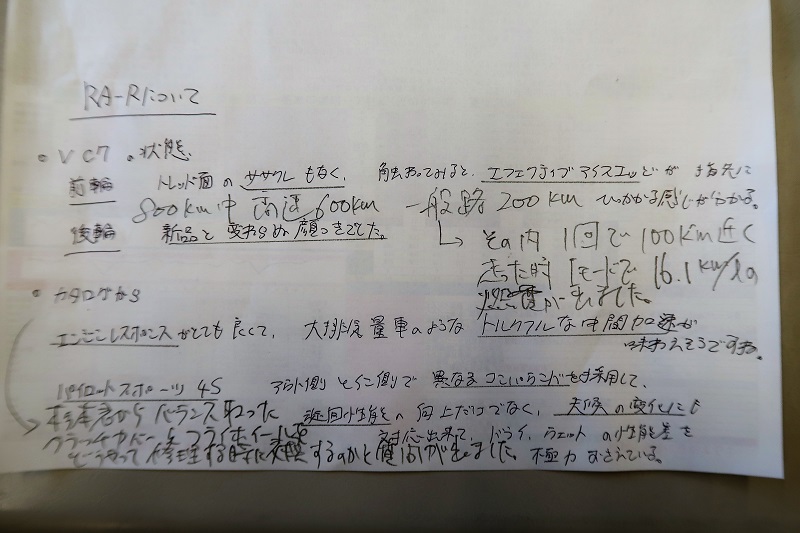 RA-Rについて
・VC7の状態
前輪 トレッド面のササクレもなく、触わってみると、エフェクティブアイスエッヂが指先に
800km中 高速600km 一般路200km ひっかかる感じがわかる。
後輪 新品と変わらぬ顔つきでした。
その内1回で100km近く
走った時 Iモードで16.1km/ℓの
燃費が出ました。
・カタログから
エンジンレスポンスがとても良くて、大排気量車のようなトルクフルな中間加速が
味わえそうですね。
パイロットスポーツ4S アウト側とイン側で異なるコンパウンドを採用して、
からバランス取った 性能の向上だけでなく、天候の変化にも
クラッチカバーとフライホイール 対応出来て、ドライ、ウェットの性能差を
どうやって修理する時に交換するのかと質問が出ました。 極力おさえている。